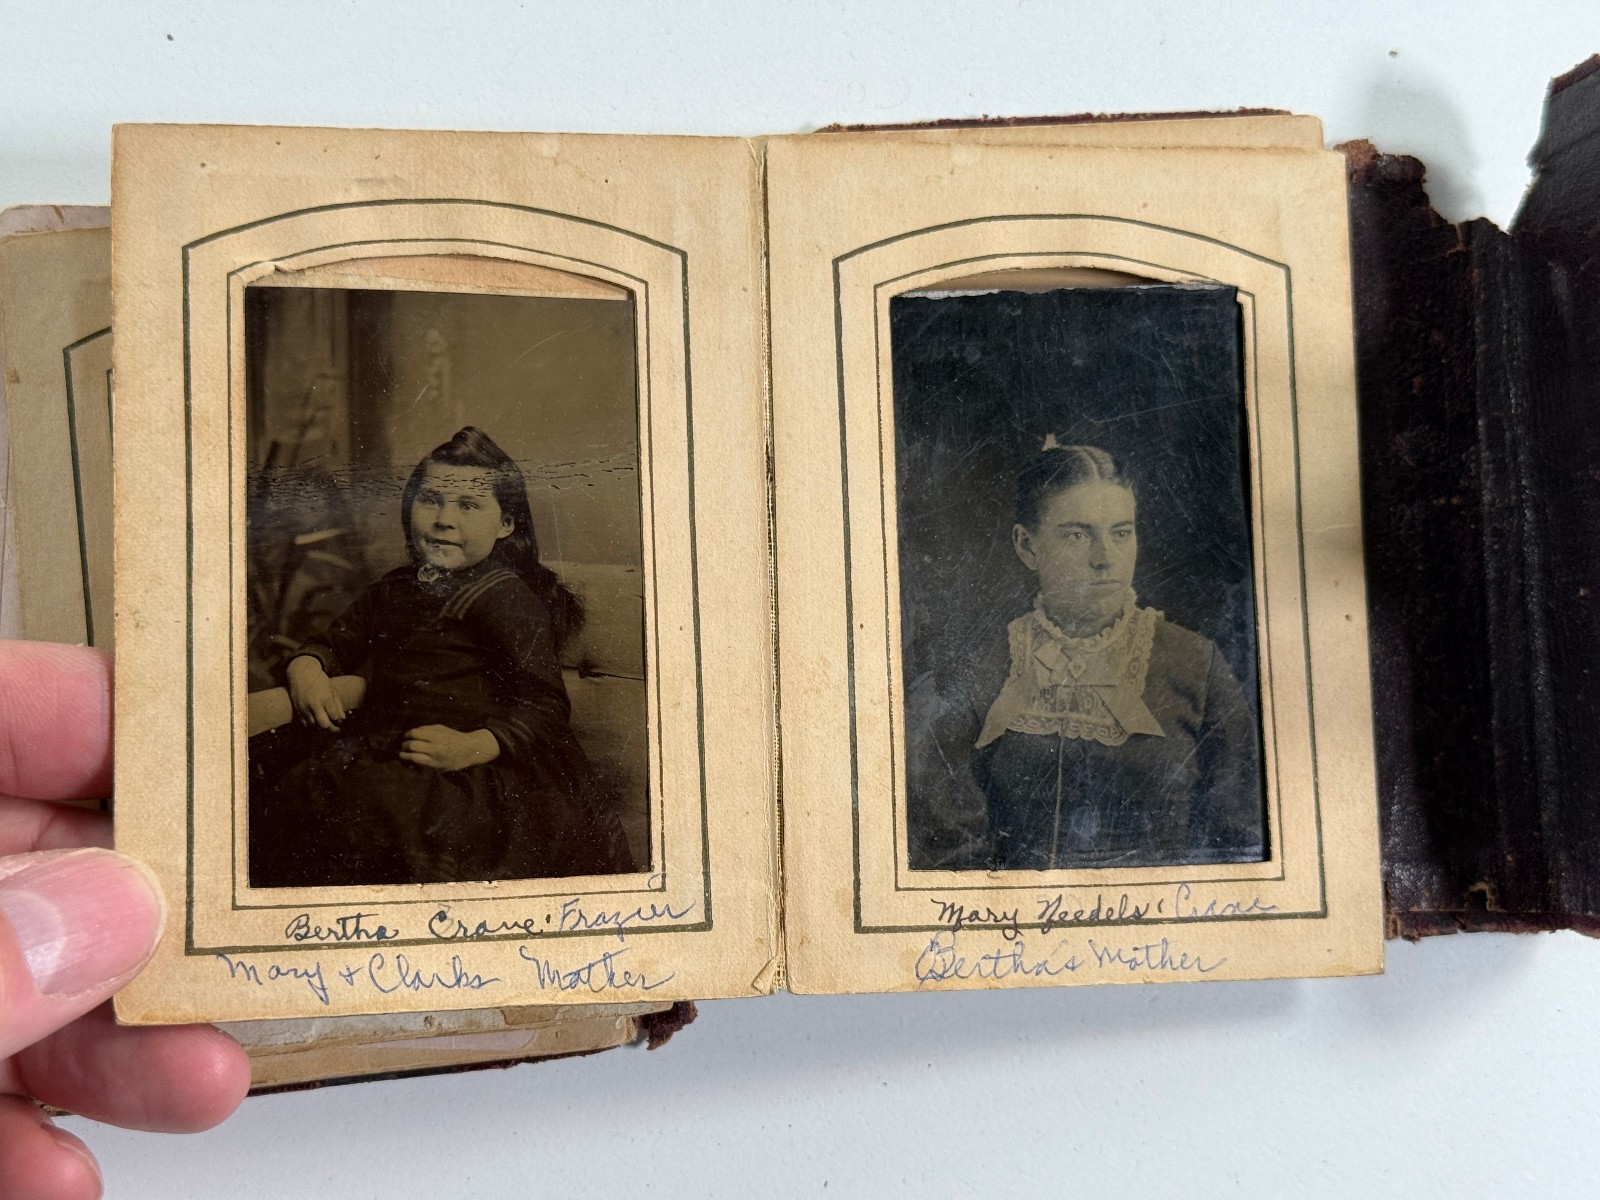 Bertha Crane. Frazier
Mary + Clarks Mother
Mary Needels. Crane
Bertha's Mother